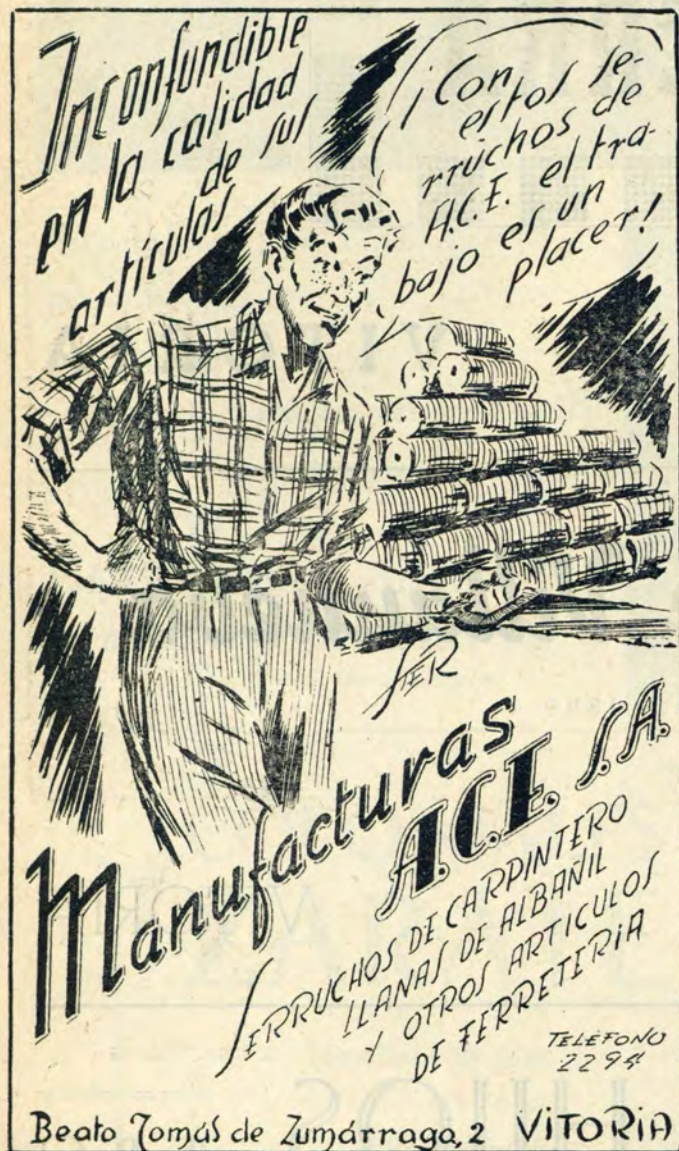 Inconfundible
en la calidad
de sus
artículas
¡Con
estos se-
rruchos de
A.C.E. el tra-
bajo es un
placer!
FER
Manufacturas
A.C.E. S.A.
SERRUCHOS DE CARPINTERO
LLANAS DE ALBAÑIL
Y OTROS ARTICULOS
DE FERRETERIA
TELÉFONO
2294
Beato Tomás de Zumárraga, 2 VITORIA